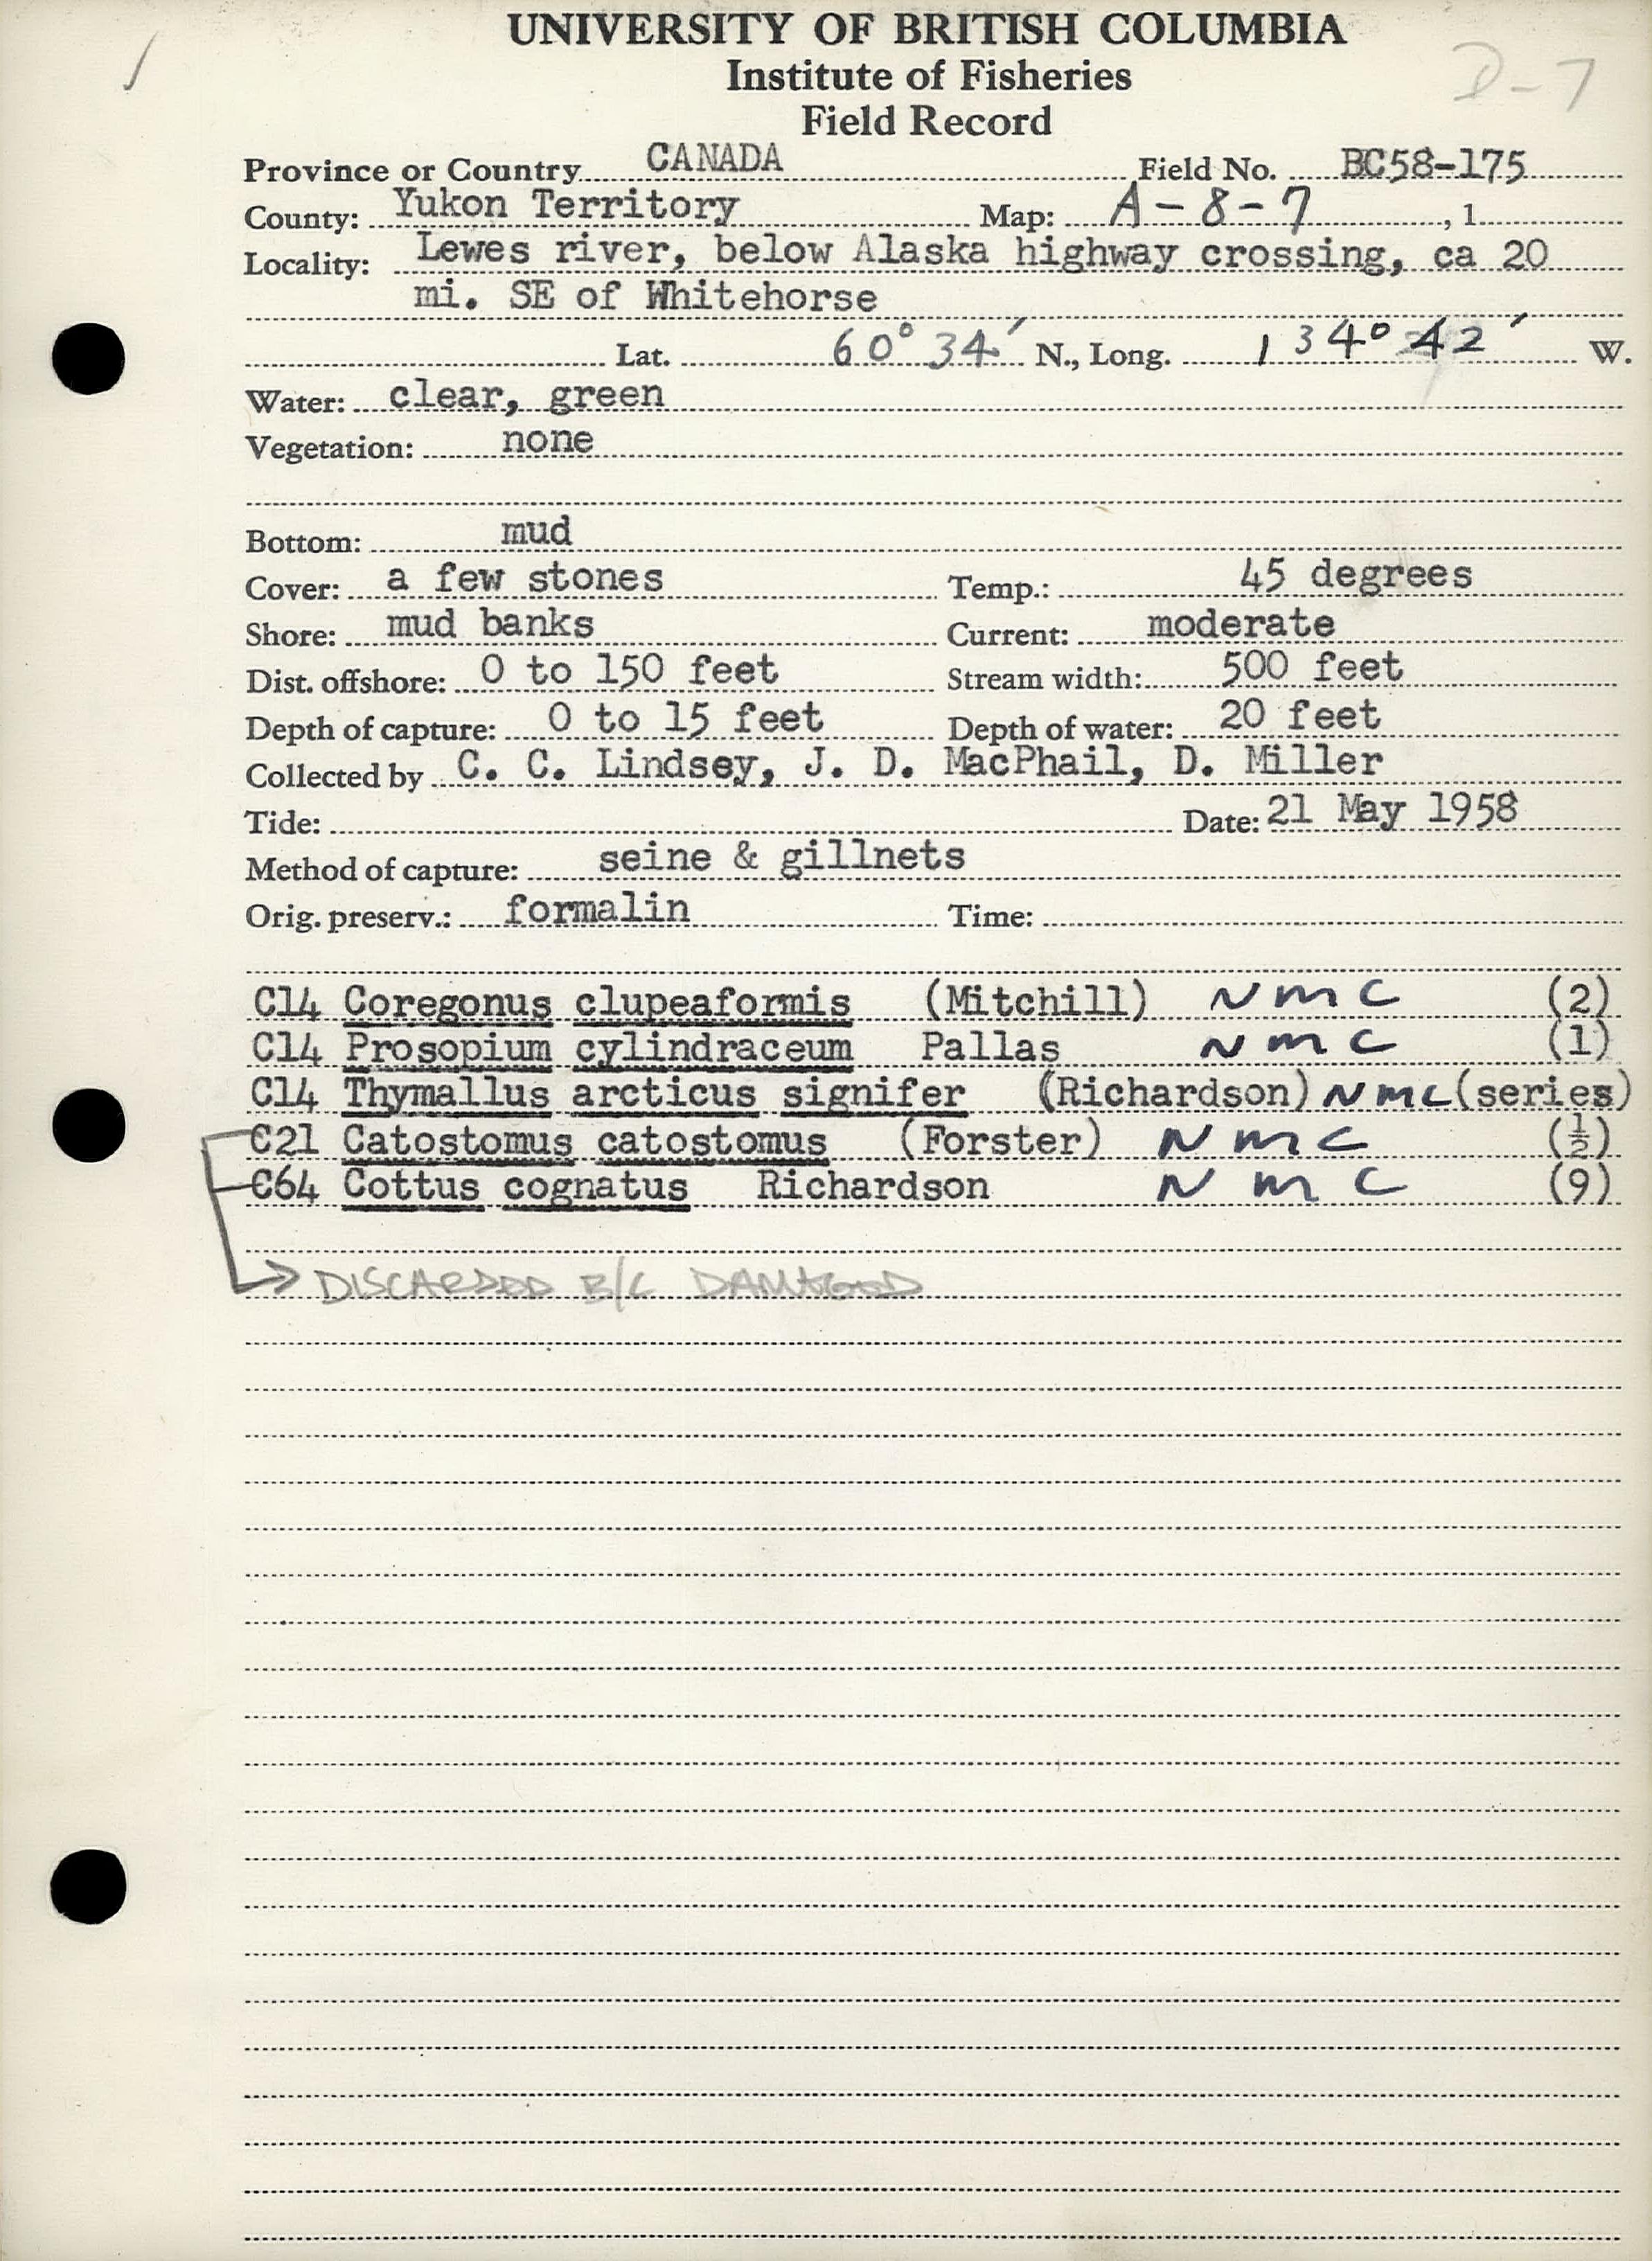 UNIVERSITY OF BRITISH COLUMBIA
Institute of Fisheries
D-7
Field Record
Province or Country CANADA Field No. BC58-175
County: Yukon Territory Map: A-8-7, 1
Locality: Lewes river, below Alaska highway crossing, ca 20
mi. SE of Whitehorse
Lat. 60° 34′ N., Long. 134° 42′ W.
Water: clear, green
Vegetation: none
Bottom: mud
Cover: a few stones Temp.: 45 degrees
Shore: mud banks Current: moderate
Dist. offshore: 0 to 150 feet Stream width: 500 feet
Depth of capture: 0 to 15 feet Depth of water: 20 feet
Collected by C. C. Lindsey, J. D. MacPhail, D. Miller
Tide: Date: 21 May 1958
Method of capture: seine & gillnets
Orig. preserv.: formalin Time:
C14 Coregonus clupeaformis (Mitchill) NMC (2)
C14 Prosopium cylindraceum Pallas NMC (1)
C14 Thymallus arcticus signifer (Richardson) NMC (series)
C21 Catostomus catostomus (Forster) NMC (½)
C64 Cottus cognatus Richardson NMC (9)
DISCARDED B/C DAMAGED